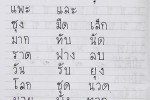 แพะ และ
ชุง มืด เล็ก
มาก ทับ นัด
ราด ฟาง ลบ
วัน รับ ยุง
โลก ชุด นวด